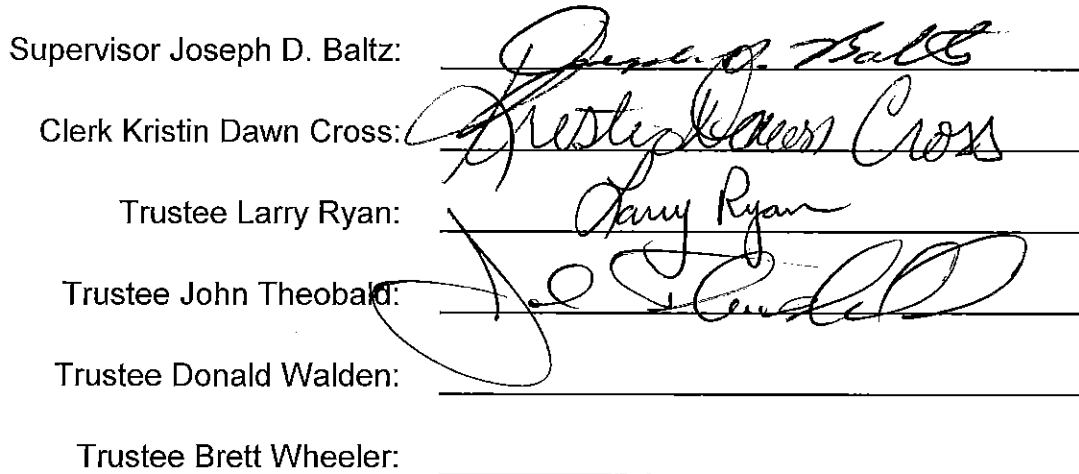 Supervisor Joseph D. Baltz: Joseph D. Baltz
Clerk Kristin Dawn Cross: Kristin Dawn Cross
Trustee Larry Ryan: Larry Ryan
Trustee John Theobald: John Theobald
Trustee Donald Walden:
Trustee Brett Wheeler: